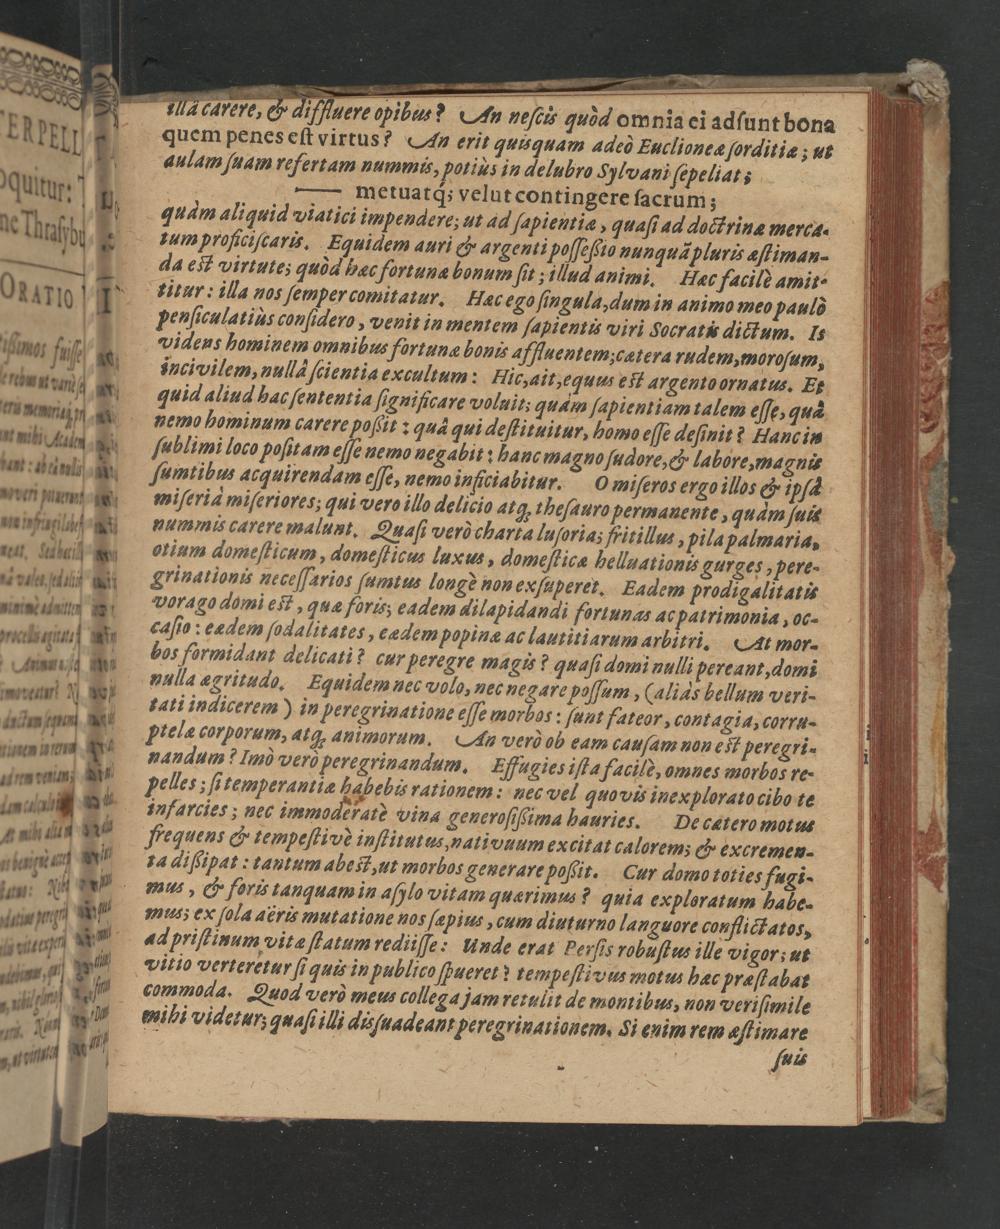 illâ carere, & diffluere opibus? An neſcis quòd omnia ei adſunt bona
quem penes eſt virtus? An erit quisquam adeò Euclioneæ ſorditiæ; ut
aulam ſuam refertam nummis, potiùs in delubro Sylvani ſepeliat;
—— metuatq́; velut contingere ſacrum;
quàm aliquid viatici impendere; ut ad ſapientiæ, quaſi ad doctrinæ merca-
tum proficiſcaris. Equidem auri & argenti poſſeſsio nunquā pluris æſtiman-
da eſt virtute; quòd hæc fortunæ bonum ſit; illud animi. Hæc facilè amit-
titur: illa nos ſemper comitatur. Hæc ego ſingula, dum in animo meo paulò
penſiculatiùs conſidero, venit in mentem ſapientis viri Socratis dictum. Is
videns hominem omnibus fortunæ bonis affluentem; cætera rudem, moroſum,
incivilem, nullâ ſcientia excultum: Hic, ait, equus eſt argento ornatus. Et
quid aliud hac ſententia ſignificare voluit; quàm ſapientiam talem eſſe, quâ
nemo hominum carere poßit: quâ qui deſtituitur, homo eſſe deſinit? Hanc in
ſublimi loco poſitam eſſe nemo negabit: hanc magno ſudore, & labore, magnis
ſumtibus acquirendam eſſe, nemo inficiabitur. O miſeros ergo illos & ipſâ
miſeriâ miſeriores; qui vero illo delicio atq; theſauro permanente, quàm ſuis
nummis carere malunt. Quaſi verò charta luſoria; fritillus, pila palmaria,
otium domeſticum, domeſticus luxus, domeſticæ helluationis gurges, pere-
grinationis neceſſarios ſumtus longè non exſuperet. Eadem prodigalitatis
vorago domi eſt, quæ foris; eadem dilapidandi fortunas ac patrimonia, oc-
caſio: eædem ſodalitates, eædem popinæ ac lautitiarum arbitri. At mor-
bos formidant delicati? cur peregre magis? quaſi domi nulli pereant, domi
nulla ægritudo. Equidem nec volo, nec negare poſſum, (aliàs bellum veri-
tati indicerem) in peregrinatione eſſe morbos: ſunt fateor, contagia, corru-
ptelæ corporum, atq; animorum. An verò ob eam cauſam non eſt peregri-
nandum? Imò verò peregrinandum. Effugies iſta facilè, omnes morbos re-
pelles; ſi temperantiæ habebis rationem: nec vel quovis inexplorato cibo te
infarcies; nec immoderatè vina generoſiſsima hauries. De cætero motus
frequens & tempeſtivè inſtitutus, nativuum excitat calorem; & excremen-
ta dißipat: tantum abeſt, ut morbos generare poßit. Cur domo toties fugi-
mus, & foris tanquam in aſylo vitam quærimus? quia exploratum habe-
mus; ex ſola aëris mutatione nos ſæpius, cum diuturno languore conflictatos,
ad priſtinum vitæ ſtatum rediiſſe: Unde erat Perſis robuſtus ille vigor; ut
vitio verteretur ſi quis in publico ſpueret? tempeſtivus motus hæc præſtabat
commoda. Quod verò meus collega jam retulit de montibus, non veriſimile
mihi videtur; quaſi illi disſuadeant peregrinationem. Si enim rem æſtimare
ſuis